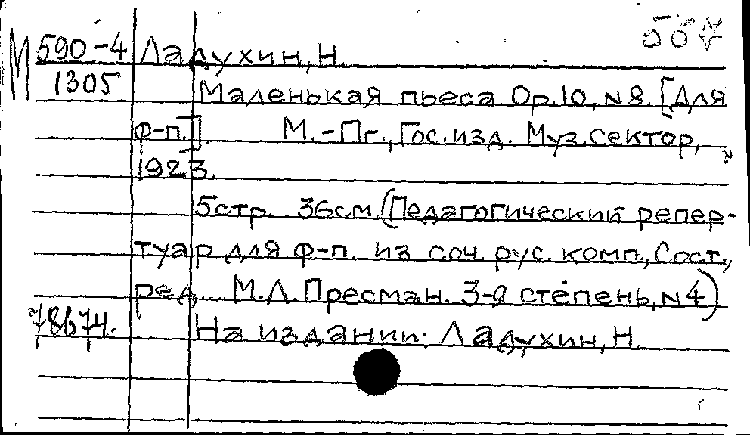 М 590-4 Ладухин, Н.
1305 Маленькая пьеса Op.10, №8. [Для
ф-п.]. М.-Пг., Гос.изд. Муз.сектор,
1923.
5стр. 36см. (Педагогический репер-
туар для ф-п. из соч. рус. комп., Сост.,
ред. М.Л. Пресман. 3-я степень, №4)
78674. На издании: Ладухин, Н.